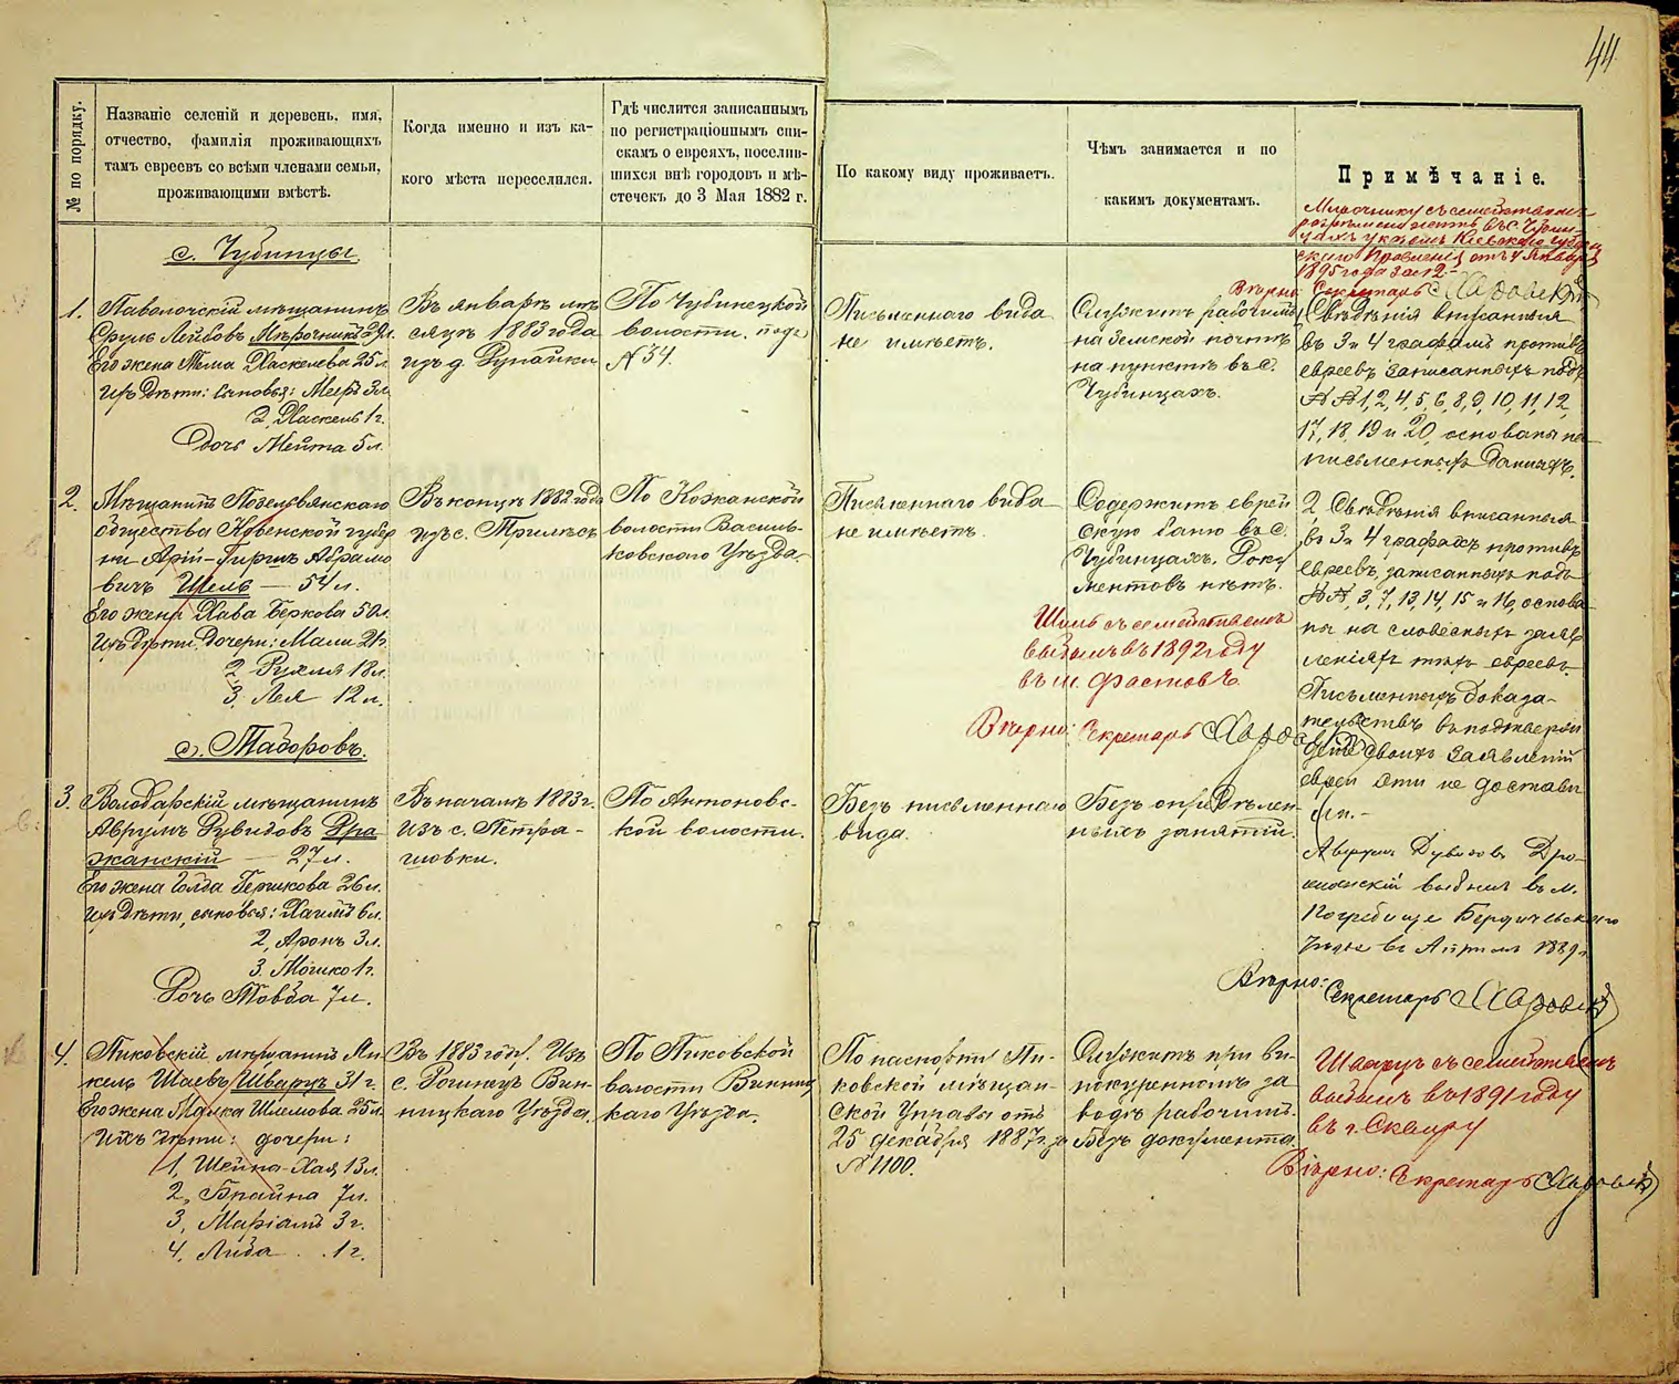 44
№ по порядку.
Названіе селеній и деревень, имя,
отчество, фамилія проживающихъ
тамъ евреевъ со всѣми членами семьи,
проживающими вмѣстѣ.
Когда именно и изъ ка-
кого мѣста переселился.
Гдѣ числится записаннымъ
по регистраціоннымъ спи-
скамъ о евреяхъ, поселив-
шихся внѣ городовъ и мѣ-
стечекъ до 3 Мая 1882 г.
По какому виду проживаетъ.
Чѣмъ занимается и по
какимъ документамъ.
Примѣчаніе.
Мирочнику съ семействомъ
жить въ с. Чуби-
нцахъ указомъ Кіевскаго Губерн
скаго Правленія отъ 4 Января
1895 года за № 12.-
Вѣрно: Секретарь
с. Чубинцы.
1.
Паволочскій мѣщанинъ
Сруль Лейбовъ Мѣрочникъ 29 л.
Его жена Тема Хаскелева 25 л.
Ихъ дѣти: сыновья: Мееръ 3 л.
2, Хаскель 1 г.
Дочь Мейта 5 л.
Въ январѣ мѣ-
сяцѣ 1883 года
изъ д. Дунайки
По Чубинецкой
волости. подъ
№ 34.
Письменнаго вида
не имѣетъ.
Служитъ рабочимъ
на земской почтѣ
на пунктѣ въ с.
Чубинцахъ.
Свѣдѣнія вписанныя
въ 3 и 4 графахъ противъ
евреевъ записанныхъ подъ
№№ 1, 2, 4, 5, 6, 8, 9, 10, 11, 12,
17, 18, 19 и 20, основаны на
письменныхъ данныхъ.
2.
Мѣщанинъ
общества Ковенской губер
ніи Арій-Гиршъ Абрамо
вичъ Шель — 54 л.
Его жена Хава Беркова 50 л.
Ихъ дѣти: дочери: Мали 21 г.
2, Рухля 18 л.
3, Лея 12 л.
Въ концѣ 1882 года
изъ с. Трилѣсъ
По Кожанской
волости Василь-
ковскаго Уѣзда.
Письменнаго вида
не имѣетъ.
Содержитъ еврей
скую баню въ с.
Чубинцахъ. Доку
ментовъ нѣтъ.
Шель съ семействомъ
выбылъ въ 1892 году
въ м. Фастовъ.
Вѣрно: Секретарь
2 Свѣдѣнія вписанныя
въ 3 и 4 графахъ противъ
евреевъ, записанныхъ подъ
№№, 3, 7, 13, 14, 15 и 16, основа-
ны на словесныхъ заяв
леніяхъ тѣхъ евреевъ.
Письменныхъ доказа-
тельствъ въ подтверж
деніе своихъ заявленій
евреи эти не достави
ли.-
с. Тадоровъ.
3.
Володарскій мѣщанинъ
Аврумъ Дувидовъ Дра
жанскій — 27 л.
Его жена Голда Гершкова 26 л.
Ихъ дѣти, сыновья: Хаимъ 6 л.
2, Аронъ 3 л.
3. Мошко 1 г.
Дочь Товба 7 л.
Въ началѣ 1883 г.
изъ с. Петра-
шовки.
По Антоновс-
кой волости.
Безъ письменнаго
вида.
Безъ опредѣлен-
ныхъ занятій.
Аврумъ Дувидовъ Дра-
жанскій выбылъ въ м.
Погребище Бердичевскаго
Уѣзда въ Апрѣлѣ 1889 г.
Вѣрно: Секретарь
4.
Пиковскій мѣщанинъ Ян-
кель Шаевъ Шварцъ 31 г.
Его жена Малка Шлемова 35 л.
Ихъ дѣти: дочери:
1, Шейна-Хая 13 л.
2, Бнайна 7 л.
3, Маріамъ 3 г.
4. Либа . . 1 г.
Въ 1883 году. Изъ
с. Рошнецъ Вин-
ницкаго Уѣзда.
По Пиковской
волости Винниц
каго Уѣзда.
По паспорту Пи-
ковской мѣщан-
ской Управы отъ
25 декабря 1887 г. за
№ 1100.
Служитъ при ви-
нокуренномъ за
водѣ рабочимъ.
Безъ документа.
Шварцъ съ семействомъ
выбылъ въ 1891 году
въ г. Сквиру
Вѣрно: Секретарь